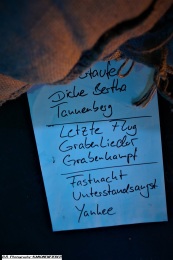 Dicke Bertha
Tannenberg
Letzte Flug
Grabenlieder
Grabenkampf
Fastnacht
Unterstandsangst
Yankee